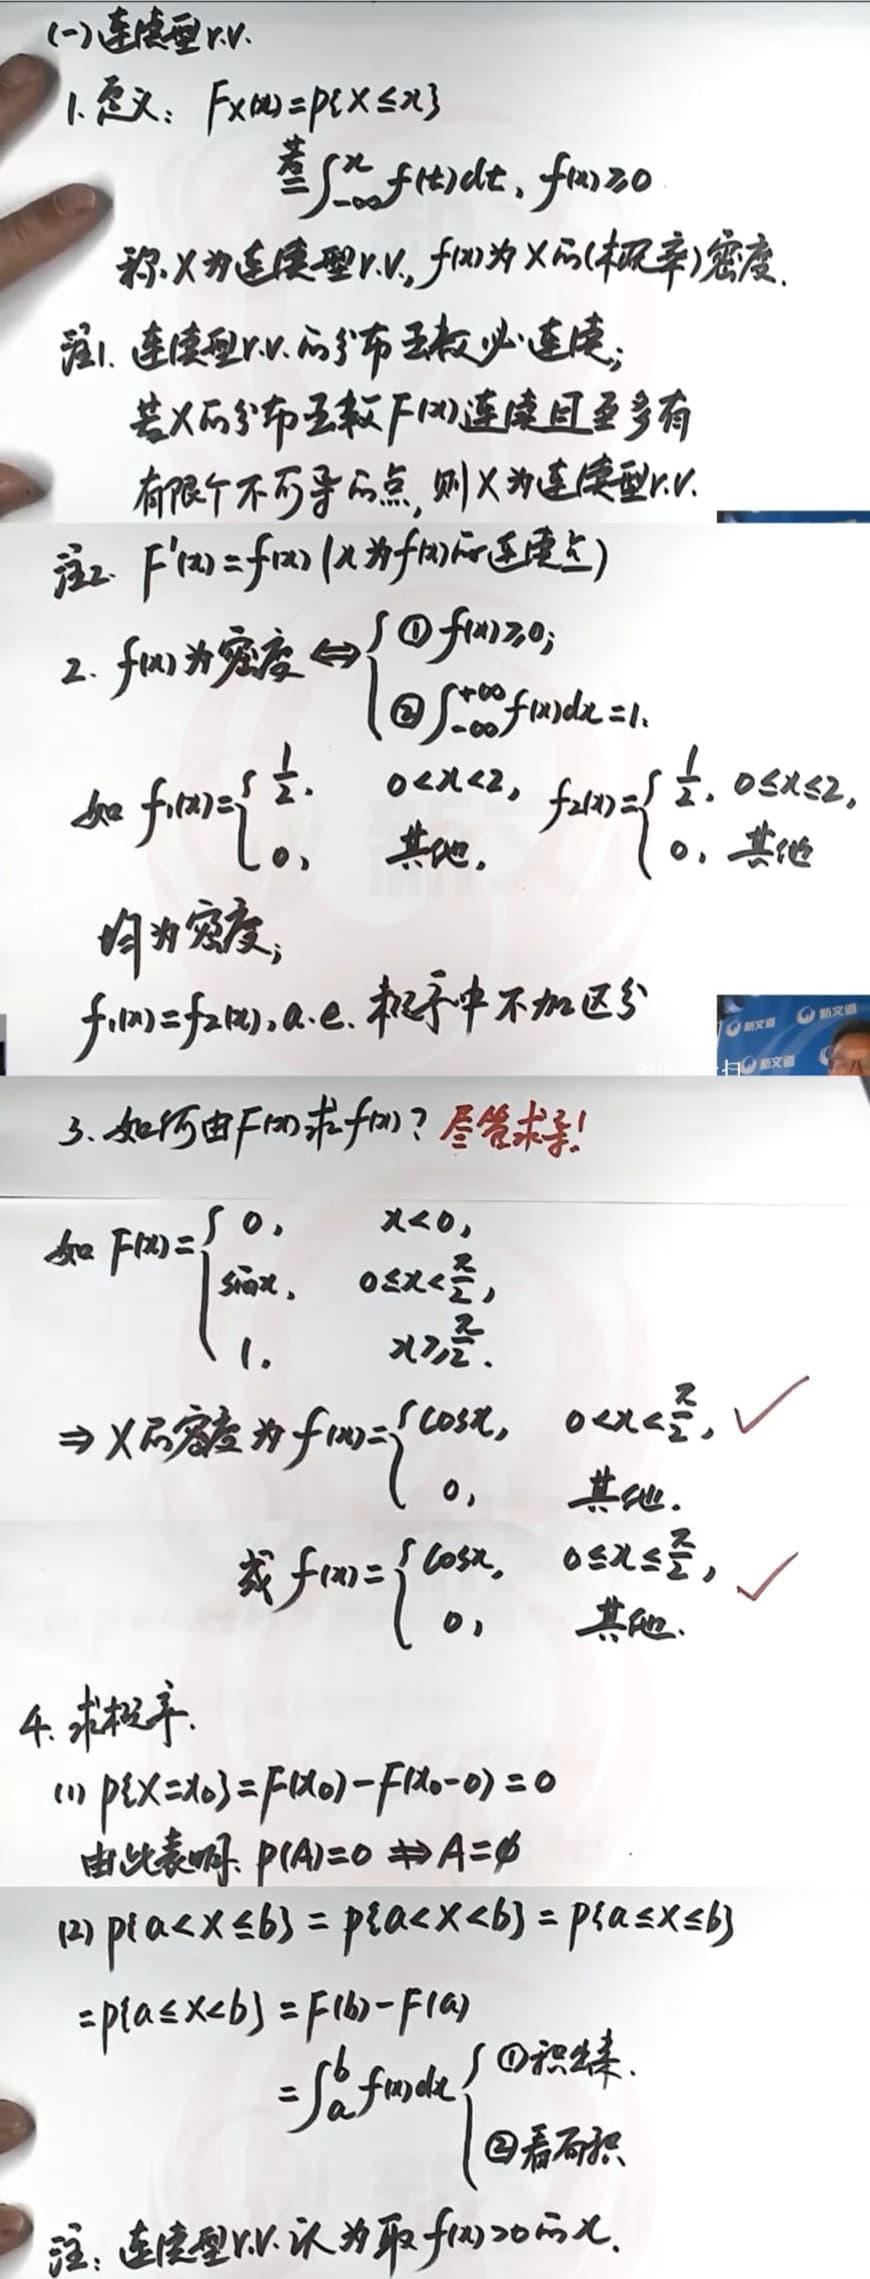 (一)连续型r.v.
1.定义: Fx(x)=P{X≤x}
若= ∫_{-∞}^{x} f(t)dt, f(x)≥0
称X为连续型r.v., f(x)为X的(概率)密度.
注1. 连续型r.v.的分布函数必连续;
若X的分布函数F(x)连续且至多有
有限个不可导的点,则X为连续型r.v.
注2. F'(x)=f(x)(x为f(x)的连续点)
2. f(x)为密度⇔{①f(x)≥0;
②∫_{-∞}^{+∞} f(x)dx=1.
如 f₁(x)={1/2, 0<x<2, f₂(x)={1/2, 0≤x≤2,
0, 其他. 0, 其他
均为密度;
f₁(x)=f₂(x), a.e. 概率中不加区分
新文道 新文道
扫 新文道
3.如何由F(x)求f(x)? 尽管求导!
如 F(x)={0, x<0,
sinx, 0≤x<π/2,
1. x≥π/2.
⇒X的密度为f(x)={cosx, 0<x<π/2, ✓
0, 其他.
或 f(x)={cosx, 0≤x≤π/2, ✓
0, 其他.
4. 求概率.
(1) P{X=x₀}=F(x₀)-F(x₀-0)=0
由此表明: P(A)=0 ⇏ A=∅
(2) P{a<X≤b}=P{a<X<b}=P{a≤X≤b}
=P{a≤X<b}=F(b)-F(a)
=∫_{a}^{b} f(x)dx{①积出来.
②看面积
注: 连续型r.v.认为取f(x)>0的x.